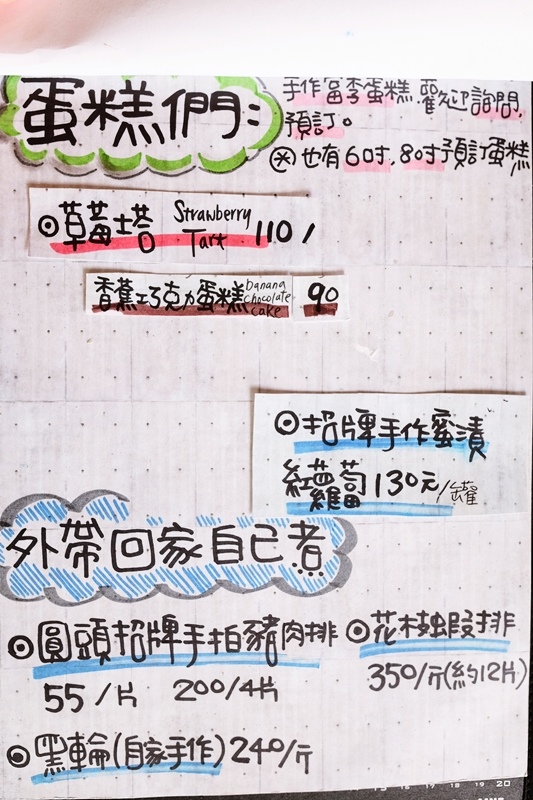 蛋糕們:
手作當季蛋糕.歡迎詢問,
預訂。
※也有6吋.8吋預訂蛋糕
◎草莓塔 Strawberry Tart 110/
香蕉巧克力蛋糕 banana chocolate cake 90
◎招牌手作蜜漬
紅蘿蔔130元/罐
外帶回家自己煮
◎圓頭招牌手拍豬肉排
55/片 200/4片
◎花枝蝦排
350/斤(約12片)
◎黑輪(自家手作)240/斤
15 16 17 18 19 20